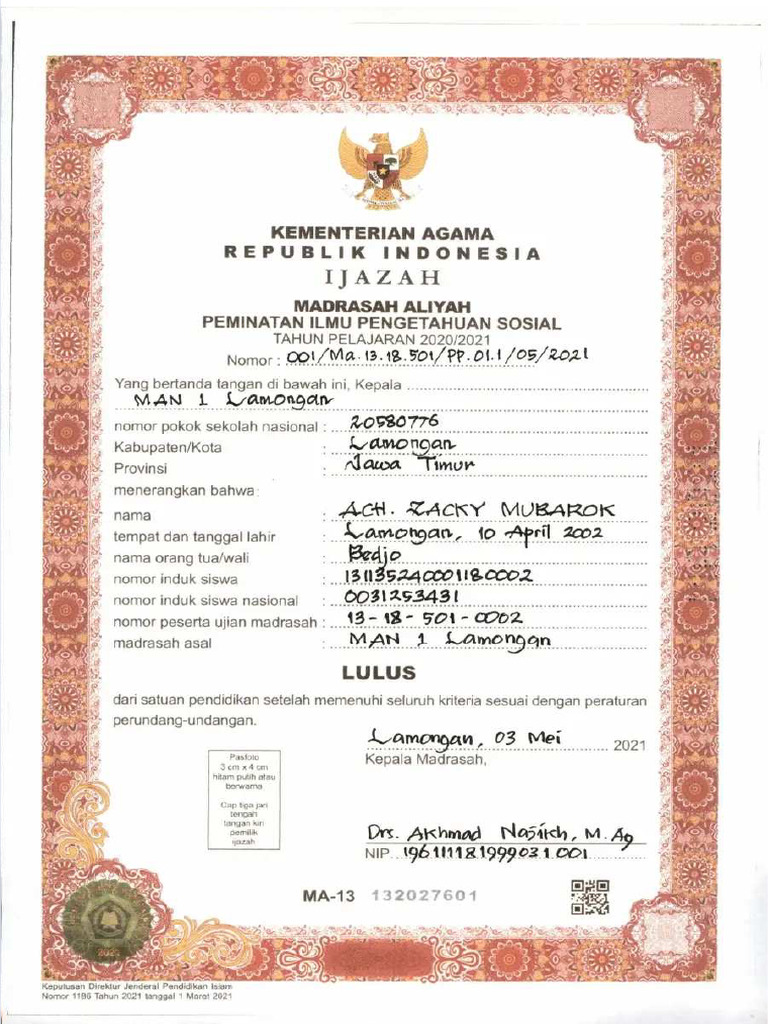 KEMENTERIAN AGAMA
REPUBLIK INDONESIA
IJAZAH
MADRASAH ALIYAH
PEMINATAN ILMU PENGETAHUAN SOSIAL
TAHUN PELAJARAN 2020/2021
Nomor : 001/Ma.13.18.501/PP.01.1/05/2021
Yang bertanda tangan di bawah ini, Kepala
MAN 1 Lamongan
nomor pokok sekolah nasional : 20580776
Kabupaten/Kota : Lamongan
Provinsi : Jawa Timur
menerangkan bahwa:
nama : ACH. ZACKY MUBAROK
tempat dan tanggal lahir : Lamongan, 10 April 2002
nama orang tua/wali : Bedjo
nomor induk siswa : 131135240001180002
nomor induk siswa nasional : 0031253431
nomor peserta ujian madrasah : 13-18-501-0002
madrasah asal : MAN 1 Lamongan
LULUS
dari satuan pendidikan setelah memenuhi seluruh kriteria sesuai dengan peraturan
perundang-undangan.
Lamongan, 03 Mei 2021
Kepala Madrasah,
Pasfoto
3 cm x 4 cm
hitam putih atau
berwarna
Cap tiga jari
tengah
tangan kiri
pemilik
ijazah
Drs. Akhmad Nasikh, M.Ag
NIP. 196111181999031.001
MA-13 132027601
2021
Keputusan Direktur Jenderal Pendidikan Islam
Nomor 1186 Tahun 2021 tanggal 1 Maret 2021